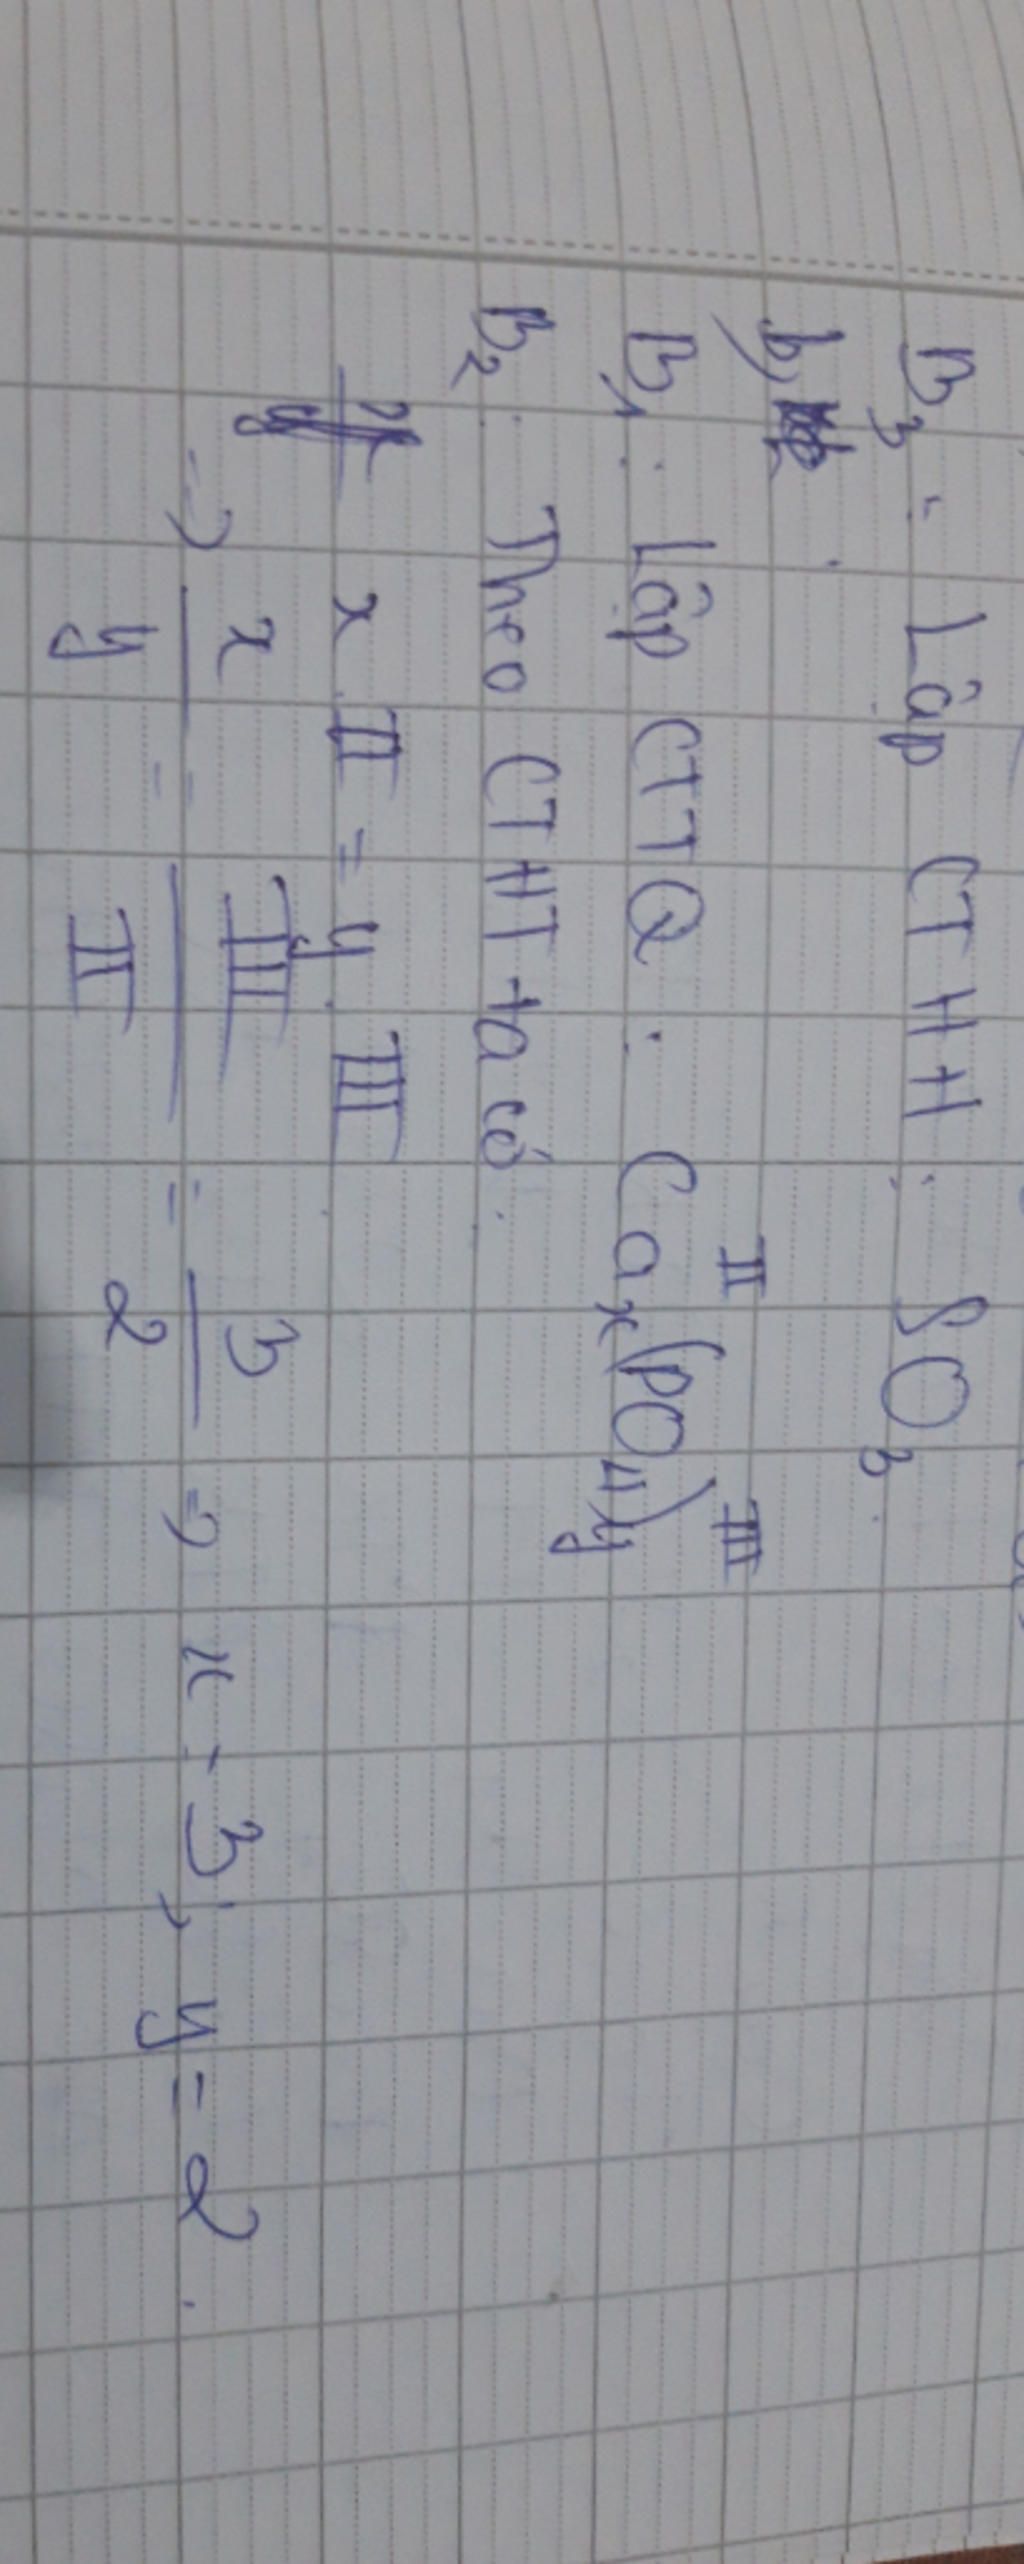 B3: Lập CTHH: SO3.
b,
B1: Lập CTTQ: CaxII(PO4)yIII
B2: Theo CTHT ta có:
x.II = y.III
=> x/y = III/II = 3/2 => x = 3; y = 2.